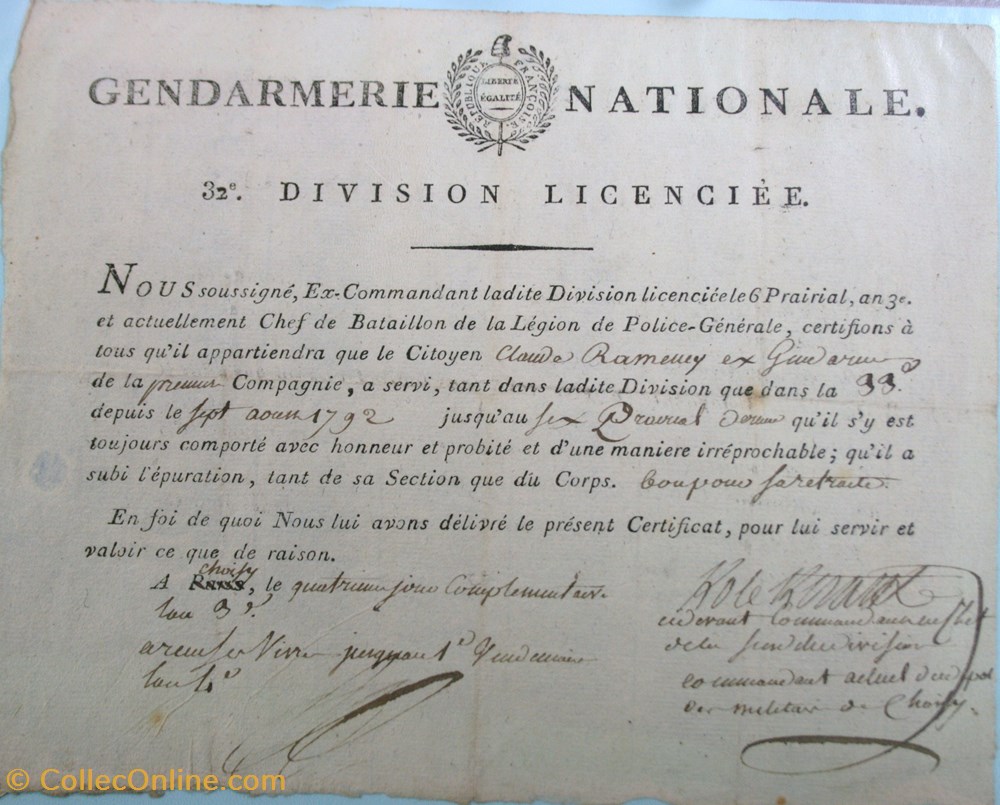 GENDARMERIE NATIONALE.
RÉPUBLIQUE FRANÇOISE.
LIBERTÉ
ÉGALITÉ
32e. DIVISION LICENCIÉE.
NOUS soussigné, Ex-Commandant ladite Division licenciée le 6 Prairial, an 3e.
et actuellement Chef de Bataillon de la Légion de Police-Générale, certifions à
tous qu'il appartiendra que le Citoyen Claude Rameney ex Gendarme
de la premiere Compagnie, a servi, tant dans ladite Division que dans la 33e
depuis le sept aoust 1792 jusqu'au six Prairial dernier qu'il s'y est
toujours comporté avec honneur et probité et d'une maniere irréprochable; qu'il a
subi l'épuration, tant de sa Section que du Corps. bon pour sa retraite.
En foi de quoi Nous lui avons délivré le présent Certificat, pour lui servir et
valoir ce que de raison.
choisy
A Paris, le quatrieme jour Complementaire
lan 3e
jusquau 1er Vendemiaire
lan 4e
commandant en chef
de la division
commandant actuel
militaire de Choisy
© CollecOnline.com